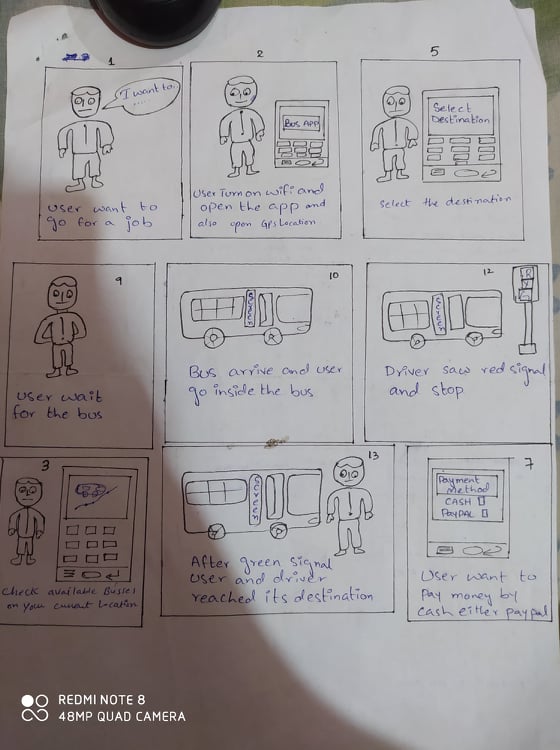 1
I want to
.....
user want to
go for a job
2
BUS APP
User Turn on wifi and
open the app and
also open Gps Location
5
Select
Destination
Select the destination
9
User wait
for the bus
10
SCREEN
Bus arrive and user
go inside the bus
12
SCREEN
R
Y
G
Driver saw red signal
and stop
3
Check available Busses
on your current location
13
SCREEN
After green signal
user and driver
reached its destination
7
Payment
method
CASH
PAYPAL
User want to
Pay money by
Cash either paypal
REDMI NOTE 8
48MP QUAD CAMERA